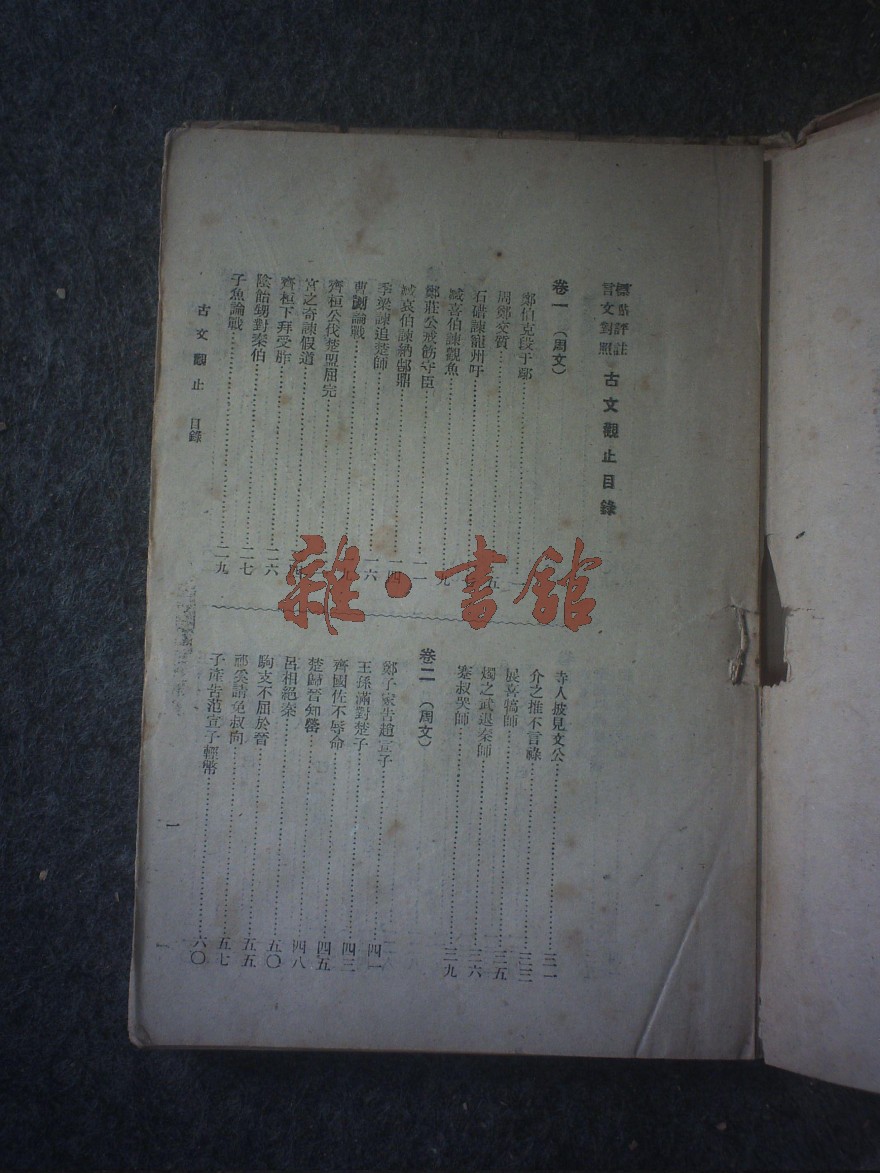 標點評註
言文對照
古文觀止目錄
卷一 (周文)
鄭伯克段于鄢……一
周鄭交質……五
石碏諫寵州吁……
臧喜伯諫觀魚……九
鄭莊公戒飭守臣……一一
臧哀伯諫納郜鼎……一四
季梁諫追楚師……一六
曹劌論戰……
齊桓公伐楚盟屈完……
宮之奇諫假道……
齊桓下拜受胙……二六
陰飴甥對秦伯……二七
子魚論戰……二九
寺人披見文公……三一
介之推不言祿……三三
展喜犒師……三五
燭之武退秦師……三六
蹇叔哭師……三九
卷二 (周文)
鄭子家告趙宣子……四一
王孫滿對楚子……四三
齊國佐不辱命……四五
楚歸晉知罃……四八
呂相絕秦……五〇
駒支不屈於晉……五五
祁奚請免叔向……五七
子產告范宣子輕幣……六〇
古文觀止 目錄
一
一
雜·書館